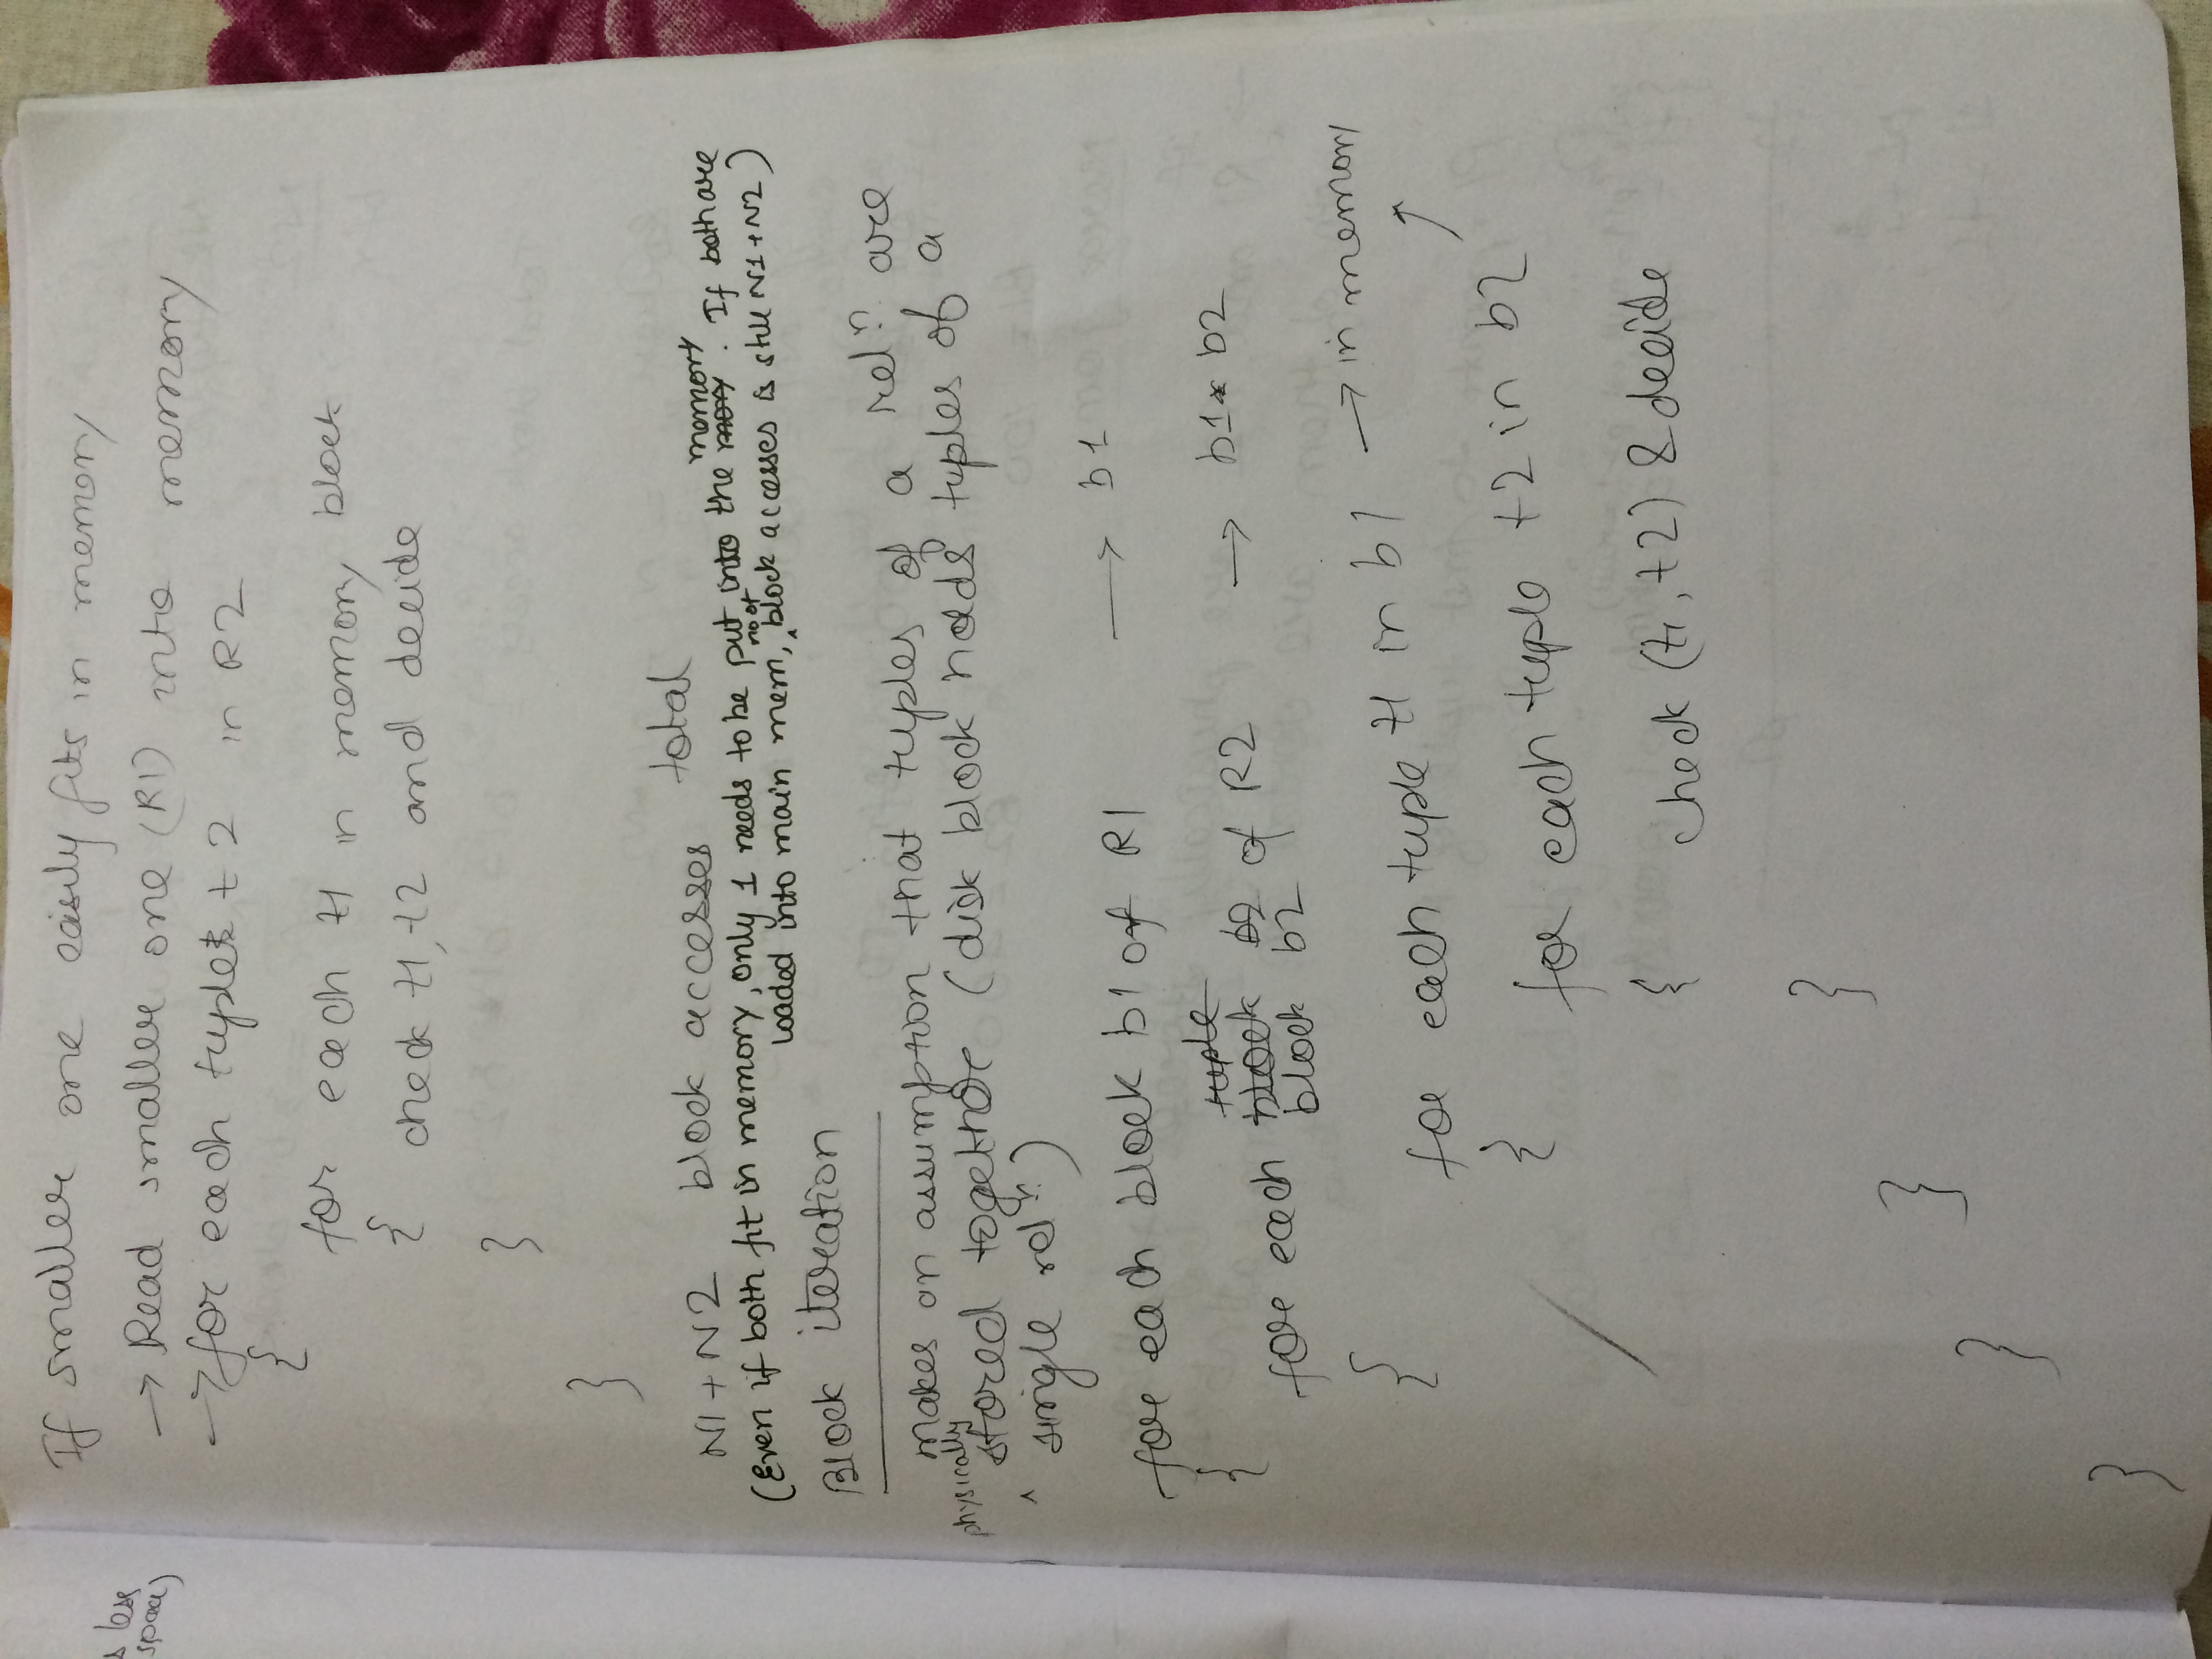 s less
space)
If smaller one easily fits in memory
→ Read smaller one (R1) into memory
→ for each tuple t2 in R2
{
for each t1 in memory block
{ check t1, t2 and decide
}
}
N1 + N2 block accesses total
(Even if both fit in memory, only 1 needs to be put into the memory. If both are
loaded into main mem, no of block accesses is still N1 + N2)
Block iteration
makes on assumption that tuples of a relⁿ are
physically stored together (disk block holds tuples of a
single relⁿ)
for each block b1 of R1 → b1
{
for each block b2 of R2 → b1 * b2
{
for each tuple t1 in b1 → in memory
{
for each tuple t2 in b2
{ check (t1, t2) & decide
}
}
}
}